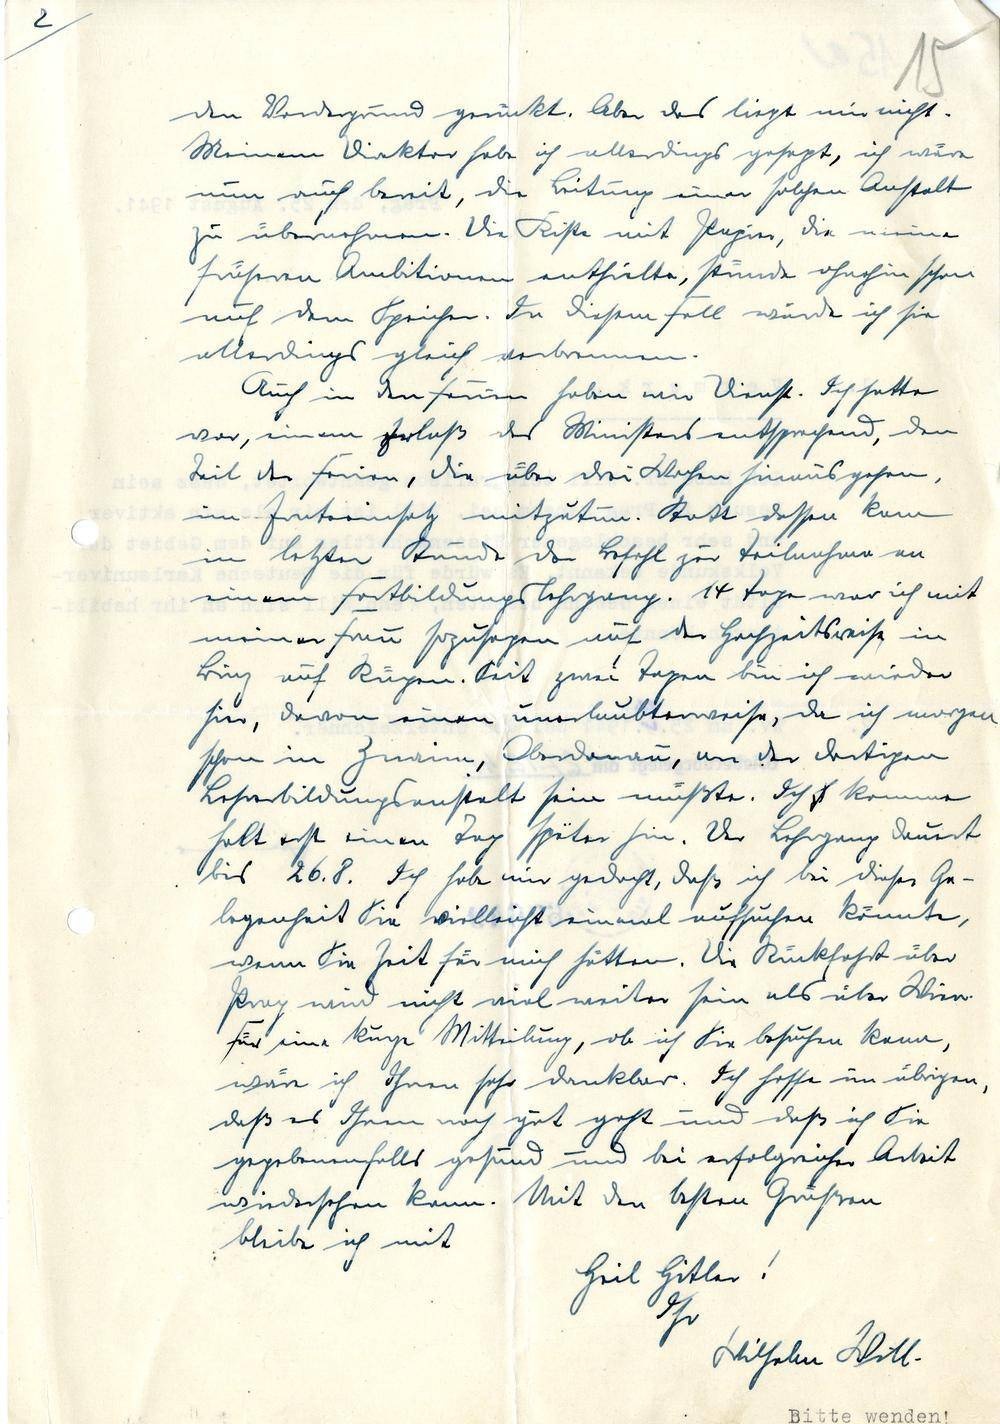 2
15
den Vordergrund gerückt. Aber das liegt mir nicht.
Meinem Direktor habe ich allerdings gesagt, ich wäre
nun auch bereit, die Leitung einer solchen Anstalt
zu übernehmen. Die Kiste mit Papier, die meine
früheren Ambitionen enthielte, stünde ohnehin schon
auf dem Speicher. In diesem Fall würde ich sie
allerdings gleich verbrennen.
Auch in den Ferien haben wir Dienst. Ich hatte
vor, einem Erlaß des Ministers entsprechend, den
Teil der Ferien, die über drei Wochen hinausgehen,
im Ernteeinsatz mitzutun. Statt dessen kam
in letzter Stunde der Befehl zur Teilnahme an
einem Fortbildungslehrgang. 14 Tage war ich mit
meiner Frau sozusagen auf der Hochzeitsreise in
Binz auf Rügen. Seit zwei Tagen bin ich wieder
hier, davon einen unerlaubterweise, da ich morgen
schon in Znaim, Oberdonau, an der dortigen
Lehrerbildungsanstalt sein müßte. Ich komme
halt erst einen Tag später hin. Der Lehrgang dauert
bis 26.8. Ich habe mir gedacht, daß ich bei dieser Ge-
legenheit Sie vielleicht einmal aufsuchen könnte,
wenn Sie Zeit für mich hätten. Die Rückfahrt über
Prag wird nicht viel weiter sein als über Wien.
Für eine kurze Mitteilung, ob ich Sie besuchen kann,
wäre ich Ihnen sehr dankbar. Ich hoffe im übrigen,
daß es Ihnen noch gut geht und daß ich Sie
gegebenenfalls gesund und bei erfolgreicher Arbeit
wiedersehen kann. Mit den besten Grüßen
bleibe ich mit
Heil Hitler!
Ihr
Wilhelm Will.
Bitte wenden!